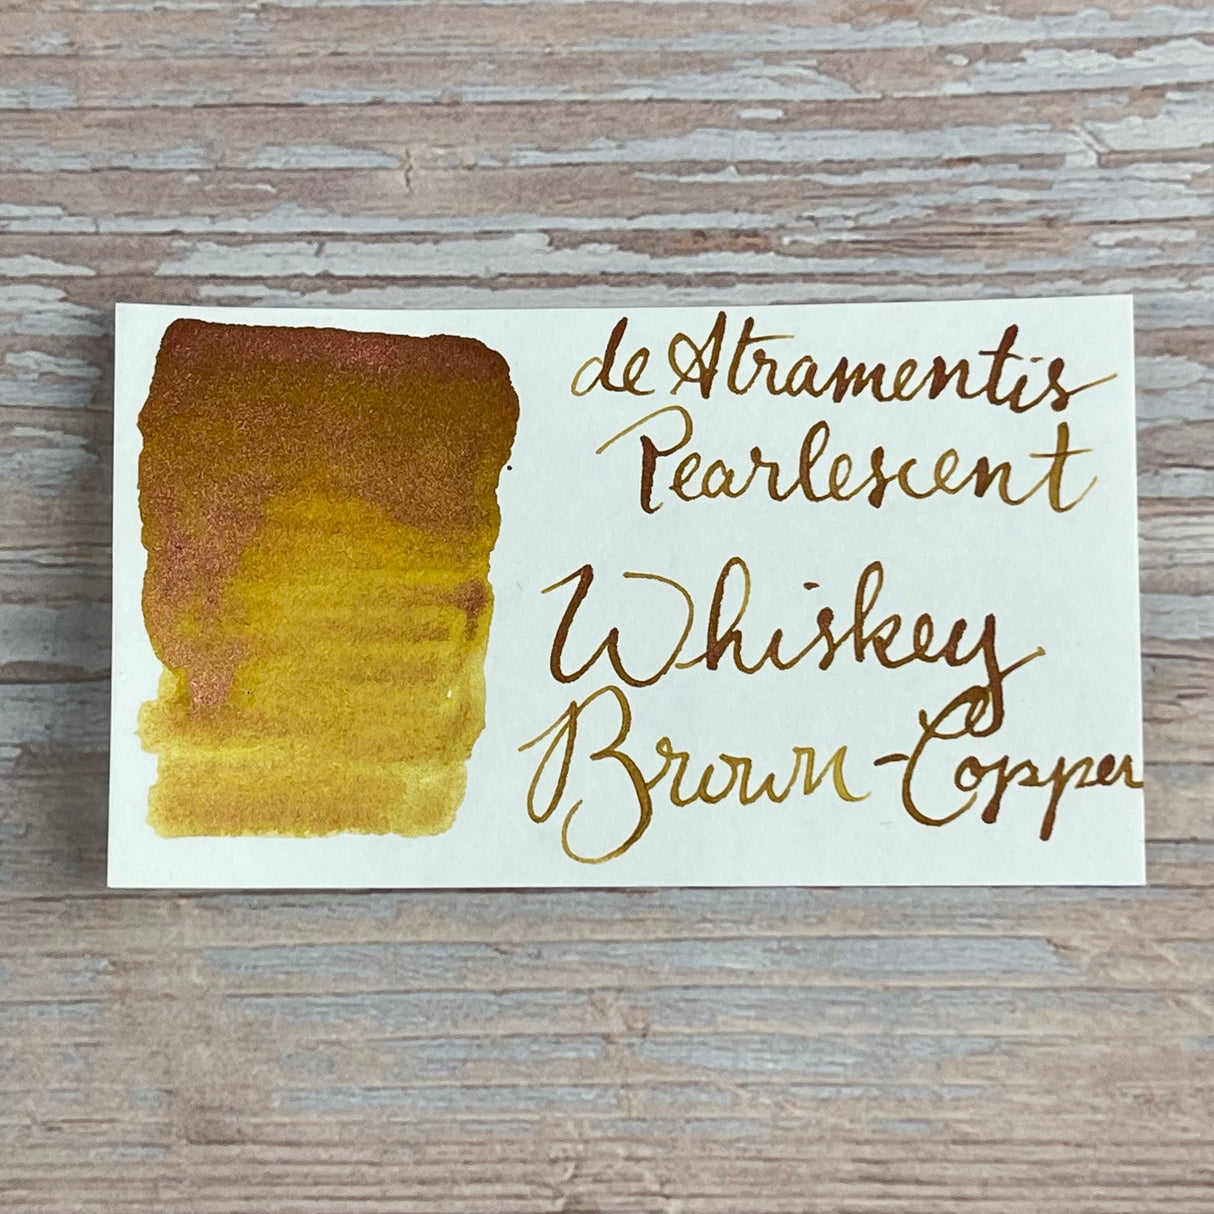 de Atramentis
Pearlescent
Whiskey
Brown-Copper